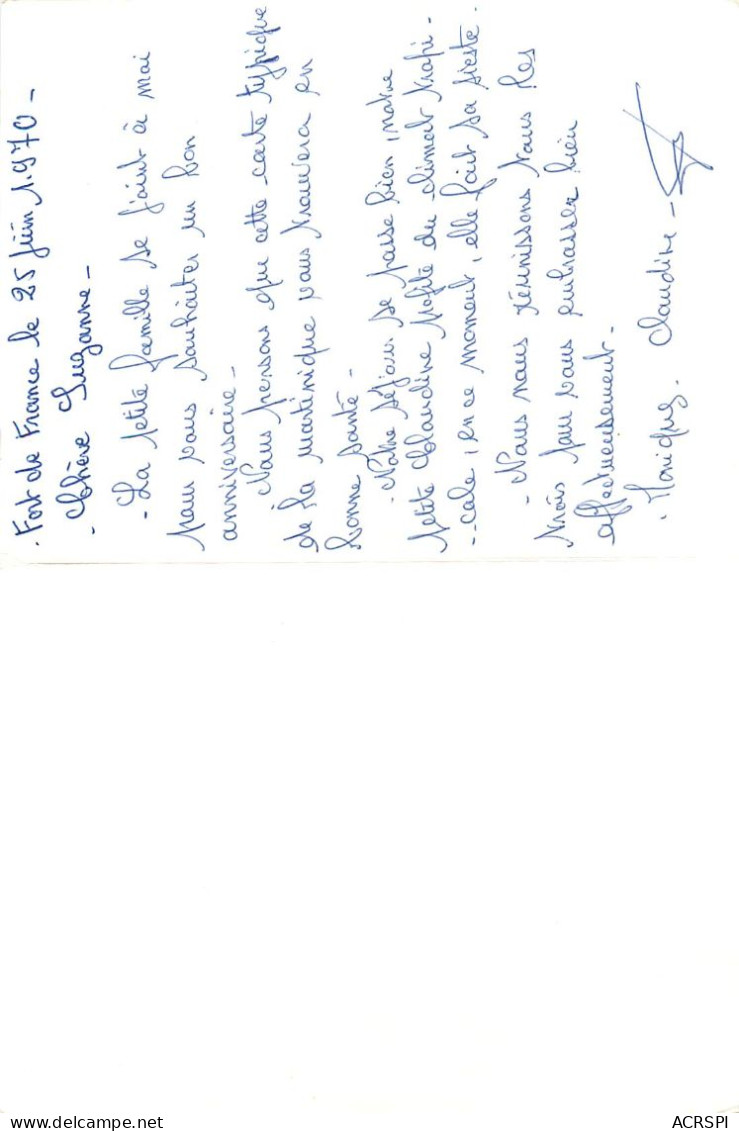 . Fort de France le 25 juin 1.970 -
- Chère Suzanne -
- La petite famille se joint à moi
pour vous souhaiter un bon
anniversaire -
Nous pensons que cette carte typique
de la martinique vous trouvera en
bonne santé -
- Notre séjour se passe bien, notre
petite Claudine profite du climat tropi -
- cale, en ce moment, elle fait sa sieste.
- Nous nous réunissons tous les
trois pour vous embrasser bien
affectueusement.
. Monique. Claudine -
ACRSPI